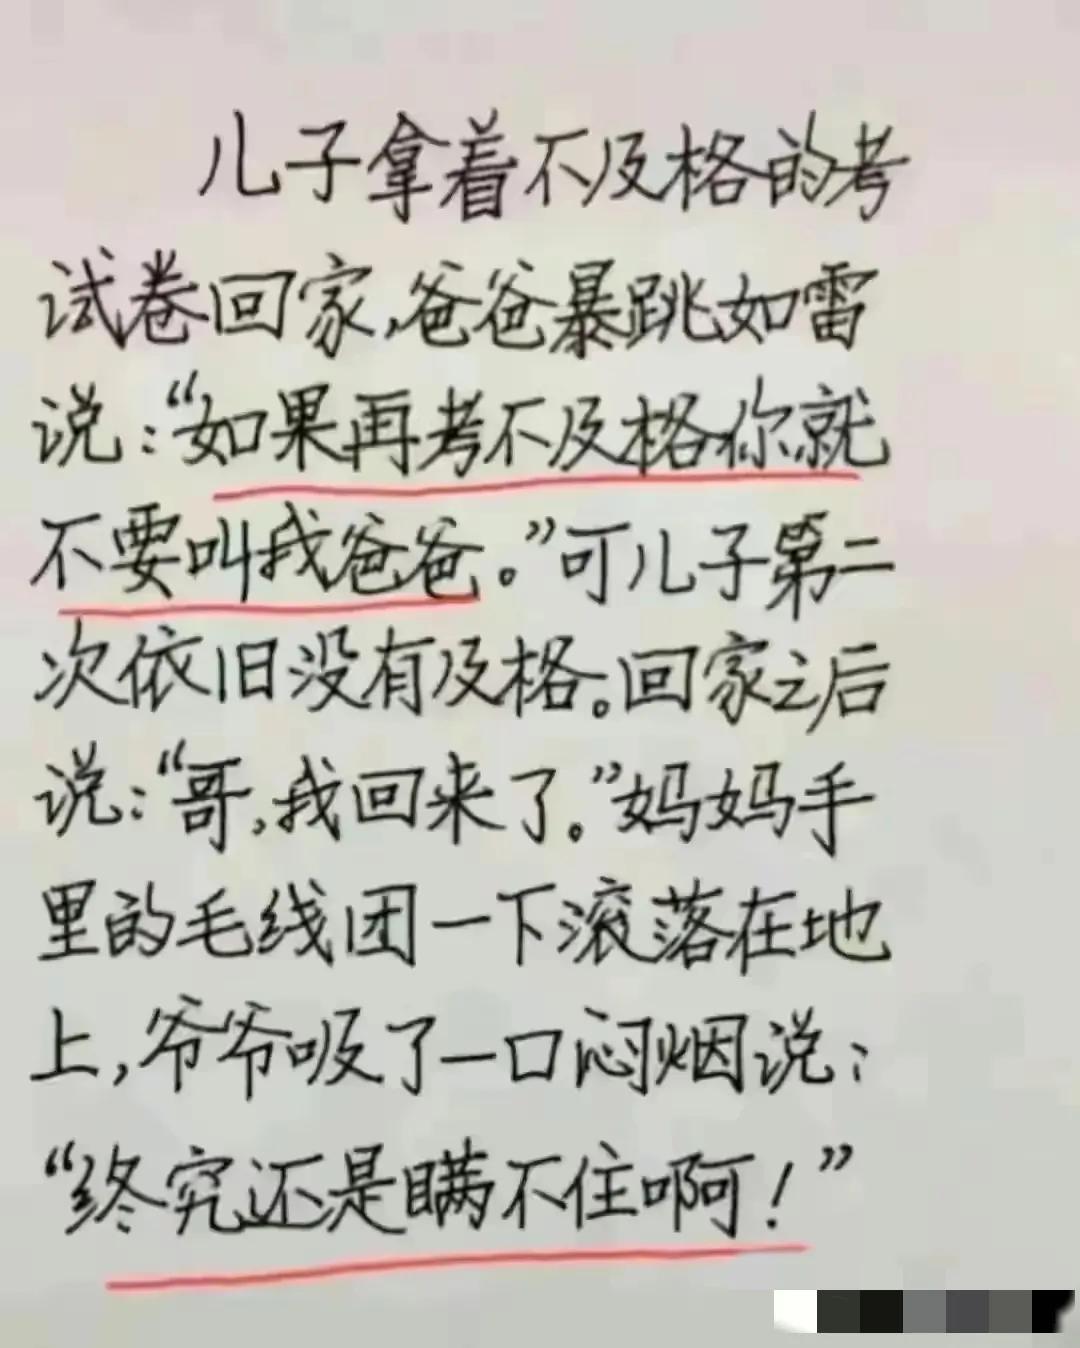 儿子拿着不及格的考
试卷回家,爸爸暴跳如雷
说:“如果再考不及格你就
不要叫我爸爸。”可儿子第二
次依旧没有及格。回家之后
说:“哥,我回来了。”妈妈手
里的毛线团一下滚落在地
上,爷爷吸了一口闷烟说:
“终究还是瞒不住啊!”